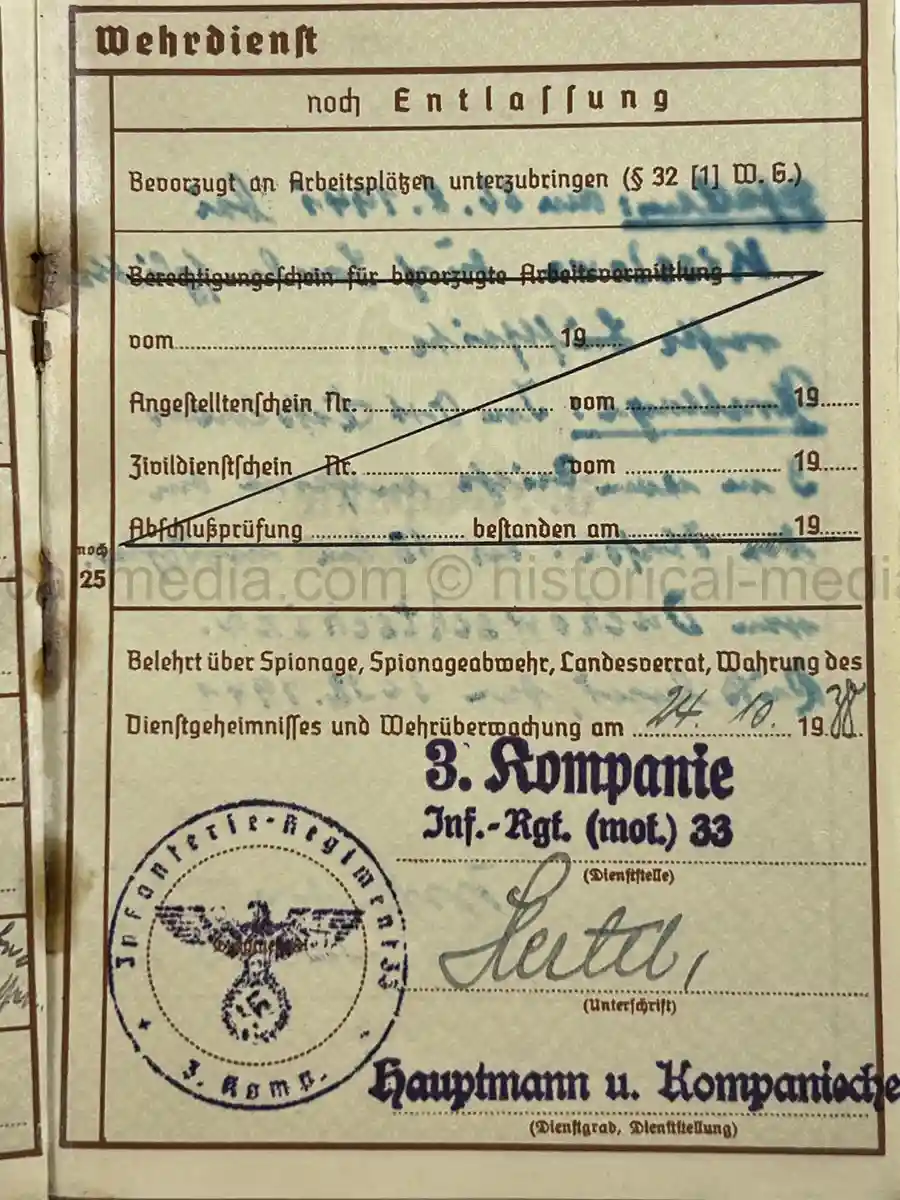 Wehrdienst
noch Entlassung
Bevorzugt an Arbeitsplätzen unterzubringen (§ 32 [1] W. G.)
Berechtigungsschein für bevorzugte Arbeitsvermittlung
vom 19
Angestelltenschein Nr. vom 19
Zivildienstschein Nr. vom 19
Abschlußprüfung bestanden am 19
noch
25
media.com © historical-media
Belehrt über Spionage, Spionageabwehr, Landesverrat, Wahrung des
Dienstgeheimnisses und Wehrüberwachung am 24. 10. 1938.
3. Kompanie
Inf.-Rgt. (mot.) 33
(Dienststelle)
Infanterie-Regiment 33
3. Komp.
(Unterschrift)
Hauptmann u. Kompanieche
(Dienstgrad, Dienststellung)